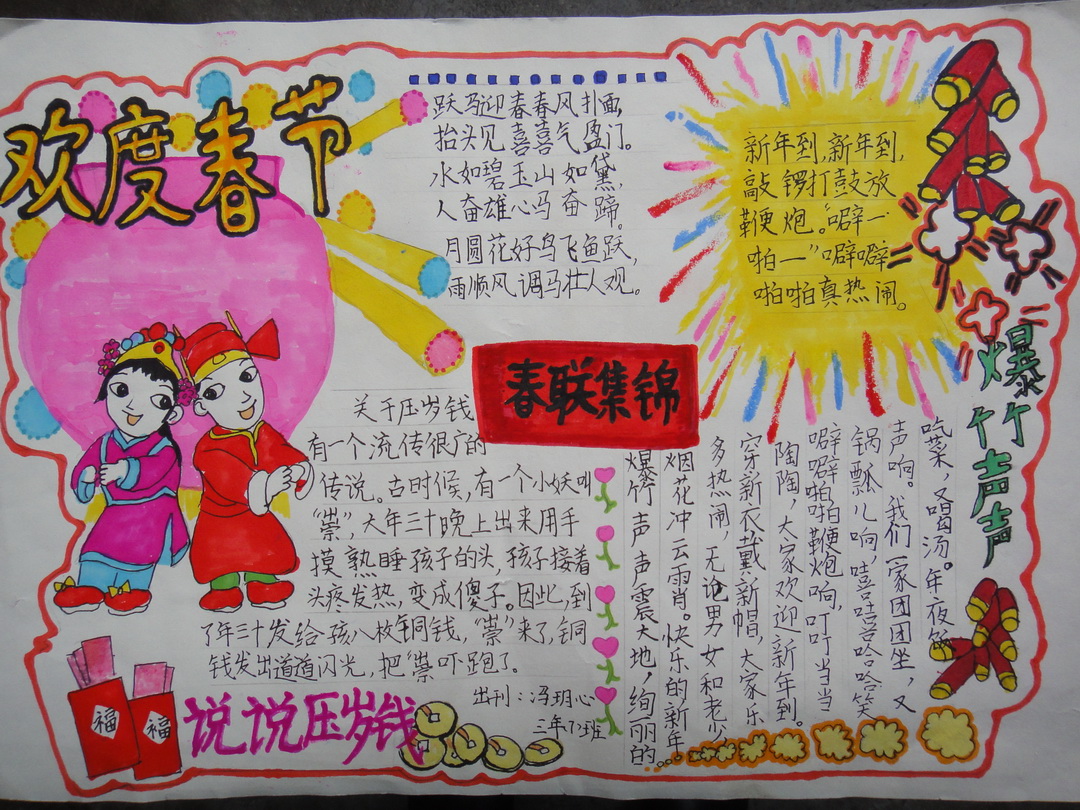 欢度春节
跃马迎春春风扑面,
抬头见喜喜气盈门。
水如碧玉山如黛,
人奋雄心马奋蹄。
月圆花好鸟飞鱼跃,
雨顺风调马壮人观。
新年到,新年到,
敲锣打鼓放
鞭炮。“噼一
啪一”噼噼
啪啪真热闹。
春联集锦
爆竹声声
关于压岁钱
有一个流传很广的
传说。古时候,有一个小妖叫
“祟”,大年三十晚上出来用手
摸熟睡孩子的头,孩子接着
头疼发热,变成傻子。因此,到
了年三十发给孩八枚铜钱,“祟”来了,铜
钱发出道道闪光,把“祟吓跑了。
说说压岁钱
福
福
出刊:冯玥心
三年
班
爆竹声声震大地,绚丽的
烟花冲云霄。快乐的新年
多热闹,无论男女和老少
穿新衣戴新帽,大家乐
陶陶,大家欢迎新年到。
噼噼啪啪鞭炮响,叮叮当当
锅瓢儿响,嘻嘻哈哈哈笑
声响。我们一家团团坐,又
吃菜,又喝汤。年夜饭